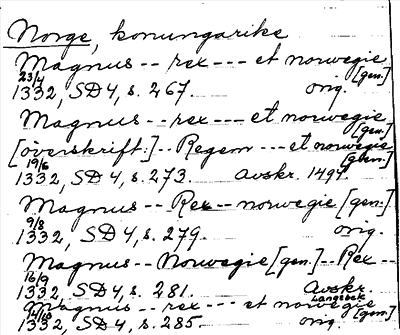 Norge, konungarike
Magnus -- rex --- et norwegie [gen.]
23/4 1332, SD 4, s. 267. orig.
Magnus -- rex --- et norwegie [gen.]
[överskrift:] -- Regem --- et norwegie [gen.]
19/6 1332, SD 4, s. 273. avskr. 1494.
Magnus -- Rex -- norwegie [gen.]
9/8 1332, SD 4, s. 279. orig.
Magnus -- Norwegie [gen.] -- Rex --
16/9 1332, SD 4, s. 281. Avskr. Langebek
Magnus -- rex --- et norwegie [gen.]
14/10 1332, SD 4, s. 285. orig.